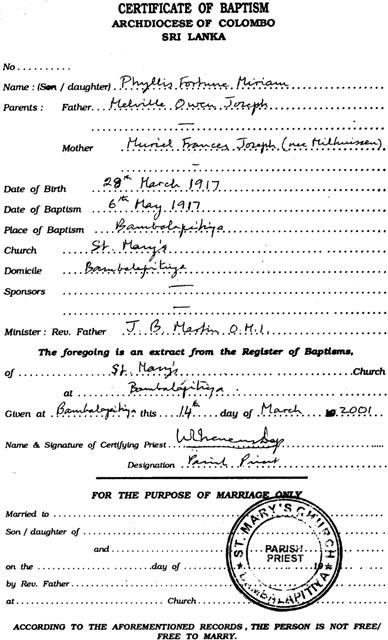 CERTIFICATE OF BAPTISM
ARCHDIOCESE OF COLOMBO
SRI LANKA
No ..........
Name : (Son / daughter) Phyllis Fortune Miriam
Parents : Father Melville Owen Joseph
—
Mother Muriel Frances Joseph (nee Milhuisen)
—
Date of Birth 28th March 1917
Date of Baptism 6th May 1917
Place of Baptism Bambalapitiya
Church St. Mary's
Domicile Bambalapitiya
Sponsors —
—
Minister : Rev. Father J. B. Martin O.M.I.
The foregoing is an extract from the Register of Baptisms,
of St. Mary's Church
at Bambalapitiya
Given at Bambalapitiya this 14th day of March 2001
Name & Signature of Certifying Priest
Designation Parish Priest
FOR THE PURPOSE OF MARRIAGE ONLY
Married to
Son / daughter of
and
on the day of 19
by Rev. Father
at Church
ST. MARY'S CHURCH
PARISH
PRIEST
BAMBALAPITIYA
ACCORDING TO THE AFOREMENTIONED RECORDS , THE PERSON IS NOT FREE/
FREE TO MARRY.